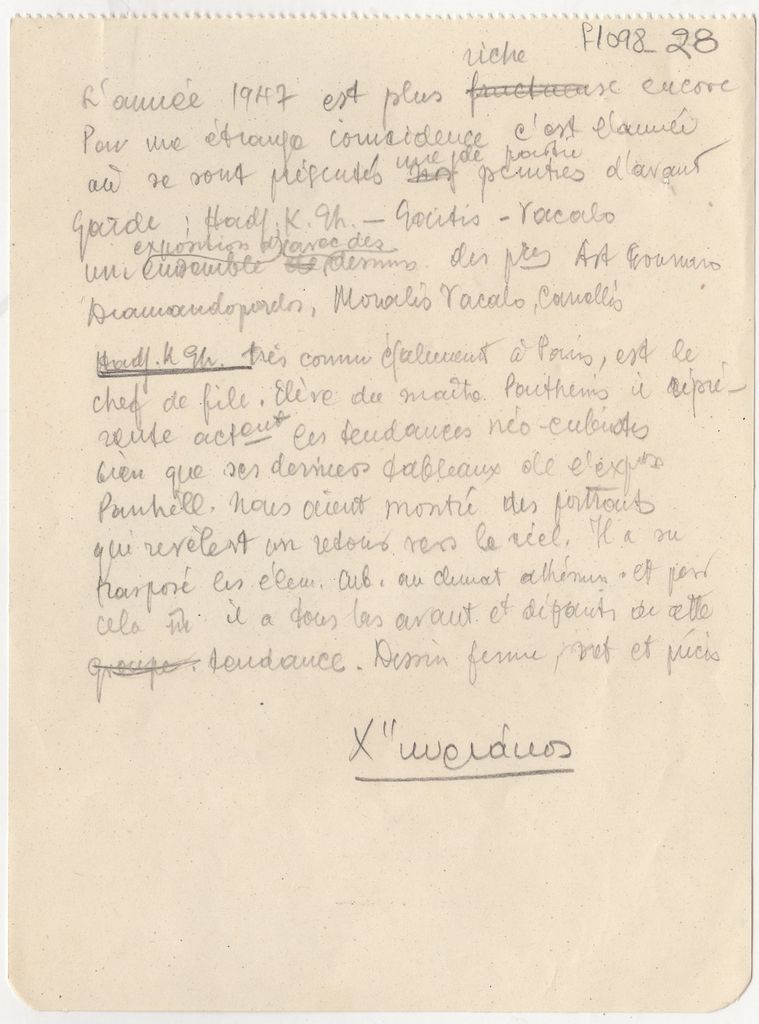 F1098_28
riche
L'année 1947 est plus fructueuse encore
Par une étrange coincidence c'est l'année
où se sont présentés peintres d'avant
Garde ; Hadj. K. Gh. — Goïtis - Vacalo
exposition avec des
un ensemble de dessins des Art Gounaro
Diamandopoulos, Moralis Vacalo, Canellis
Hadj. K Gh. très connu également à Paris, est le
chef de file. Elève du maître Parthenis il répré-
sente actent les tendances néo-cubistes
bien que ses derniers tableaux de l'expos
Panhell. nous aient montré des portraits
qui revèlent un retour vers le réel. Il a su
trasposé les élem. cub. au climat athénien et par
cela il a tous les avant. et défauts de cette
groupe. tendance. Dessin ferme, net et précis
Χ"κυριάκος